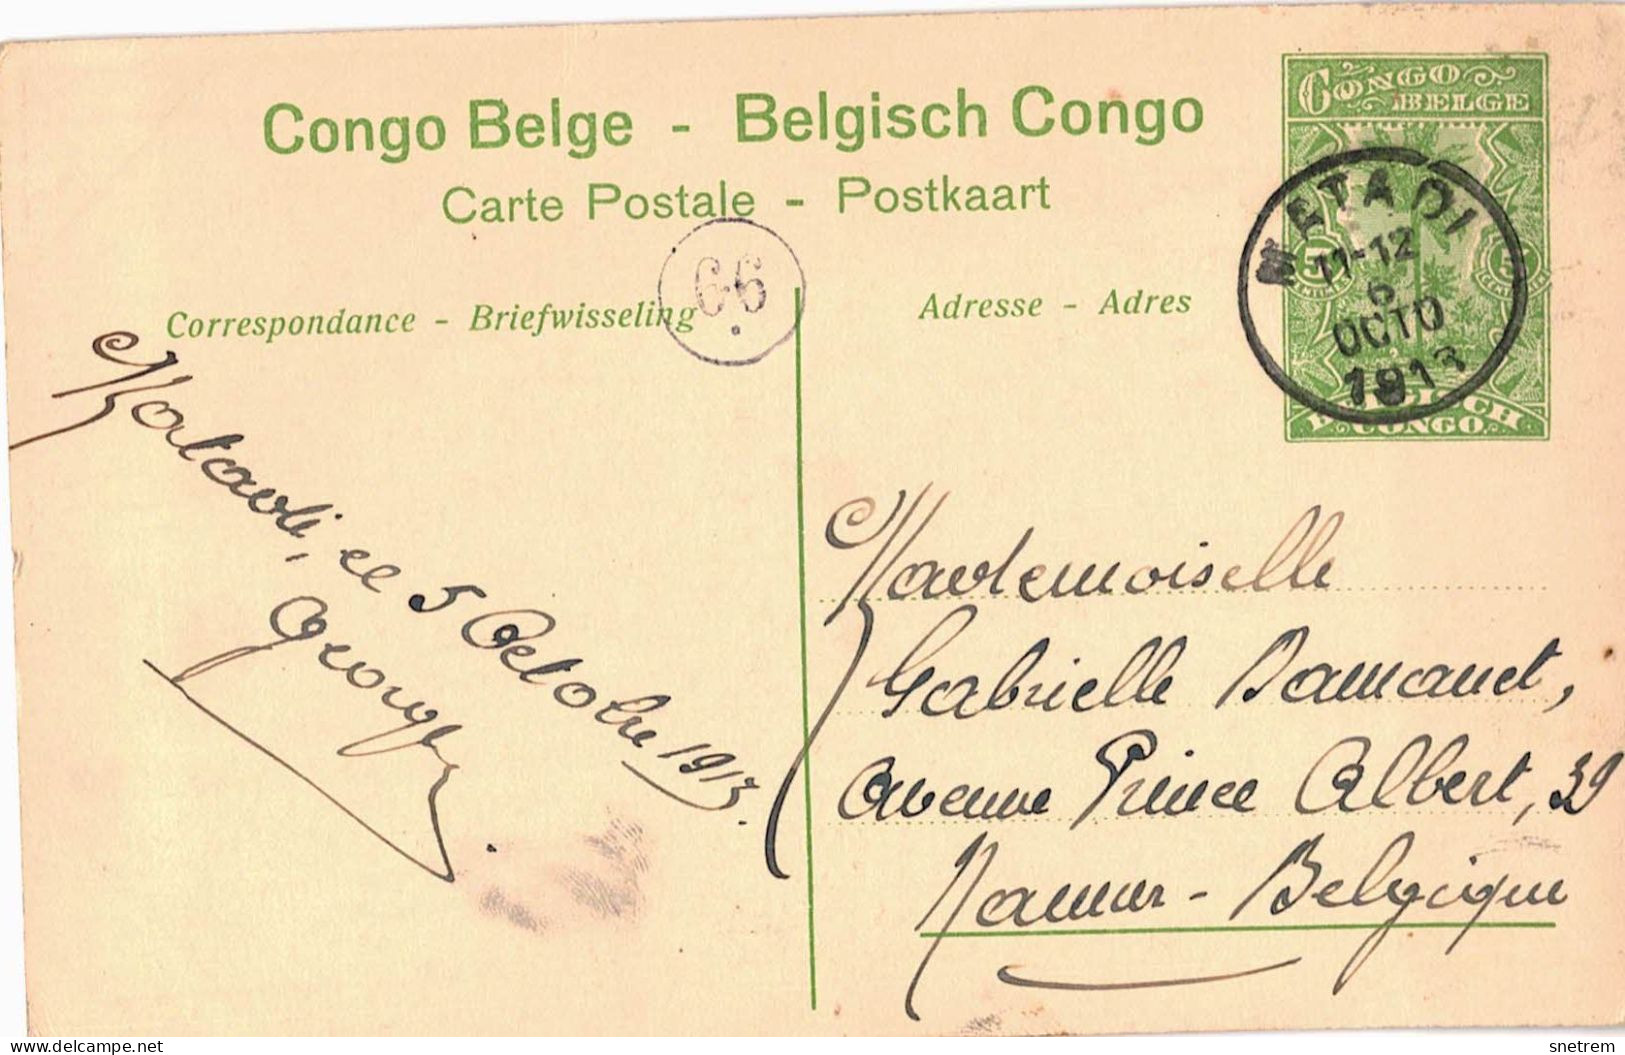 Congo Belge - Belgisch Congo
Carte Postale - Postkaart
CONGO
BELGE
5
5
CONGO
METADI
11-12
6
OCTO
1913
6·6
Correspondance - Briefwisseling
Adresse - Adres
Matadi, le 5 Octobre 1913.
Georges
Mademoiselle
Gabrielle Damanet,
Avenue Prince Albert, 39
Namur - Belgique
delcampe.net
snetrem